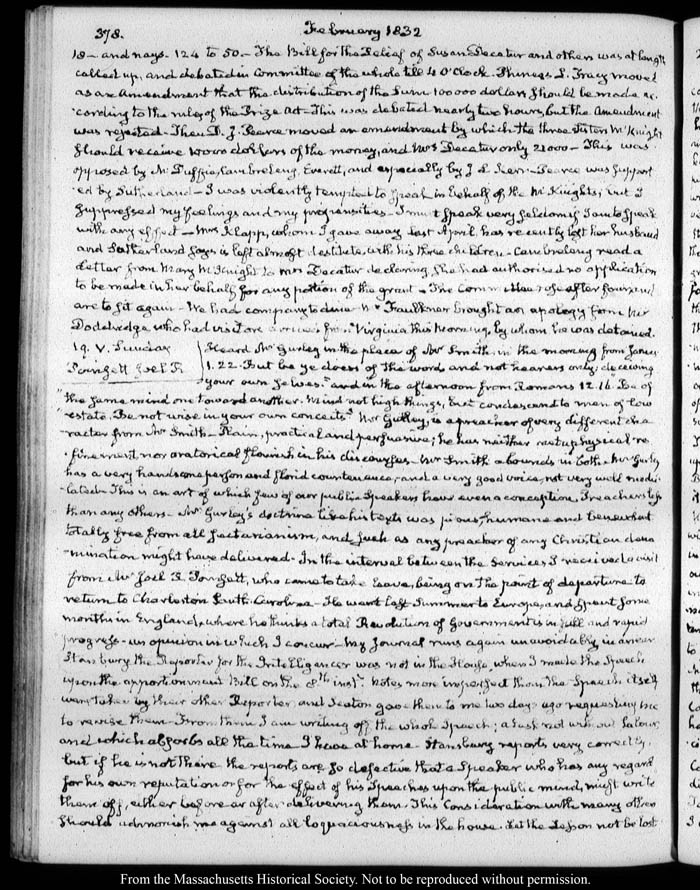 378. February 1832
18— and nays. 124 to 50.— The Bill for the Relief of Susan Decatur and others was at length
called up, and debated in Committee of the whole till 4 O'Clock. Phineas L. Tracy moved
as an Amendment that the distribution of the Sum 100 000 dollars should be made ac
-cording to the rules of the Prize Act— This was debated nearly two hours, but the Amendment
was rejected— Then D. J. Pearce moved an amendment by which the three Sisters McKnight
should receive dollars of the money, and Mrs Decatur only — This was
opposed by McDuffie, Cambreleng, Everett, and especially by J. Pearce was Support
-ed by Sutherland— I was violently tempted to speak in behalf of the McKnights; but I
suppressed my feelings and my propensities— I must speak very seldom if I am to speak
with any effect— Mrs Klapp, whom I gave away last April, has recently lost her husband
and Sutherland says is left almost destitute, with his three children— Cambreleng read a
Letter from Mary McKnight to Mrs Decatur declaring she had authorised no application
to be made in her behalf for any portion of the grant— The Committee rose after four, and
are to sit again— We had company to dine Mr Faulkner brought an apology from Mr
Doddridge who had visitors arrived from Virginia this Morning, by whom he was detained.
19. V. Sunday
Poinsett Joel R
Heard Mr Gurley in the place of Mr Smith, in the morning from James
1. 22. But be ye doers of the word and not hearers only, deceiving
your own selves." and in the afternoon from Romans 12. 16. Be of
"the same mind one toward another. Mind not high things, but condescend to men of low
"estate. Be not wise in your own conceits." Mr Gurley, is a preacher of very different cha
-racter from Mr Smith— Plain, practical and persuasive; he has neither metaphysical re
-finement nor oratorical flourish in his discourses— Mr Smith abounds in both. Mr Gurley
has a very handsome person and florid countenance, and a very good voice, not very well modu
-lated— This is an art of which few of our public Speakers have even a conception. Preachers less
than any others— Mr Gurley's doctrine like his texts was pious, humane and benevolent
totally free from all sectarianism, and such as any preacher of any Christian deno
-mination might have delivered— In the interval between the Services I received a visit
from Mr Joel R. Poinsett, who came to take leave, being on the point of departure to
return to Charleston South-Carolina— He went last Summer to Europe, and spent some
months in England, where he thinks a total Revolution of Government is in full and rapid
progress— an opinion in which I concur— My Journal runs again unavoidably in arrear
Stansbury the Reporter for the Intelligencer was not in the House, when I made the Speech
upon the apportionment Bill on the 8th inst. Notes more imperfect than the Speech itself
were taken by their other Reporter, and Seaton gave them to me two days ago requesting me
to revise them— From them I am writing off the whole Speech; a task not without labour,
and which absorbs all the time I have at home. Stansbury reports very correctly,
but if he is not there the reports are so defective that a Speaker who has any regard
for his own reputation or for the effect of his Speeches upon the public mind, must write
them off, either before or after delivering them. This Consideration with many others
should admonish me against all loquaciousness in the house. Let the Lesson not be lost.
From the Massachusetts Historical Society. Not to be reproduced without permission.